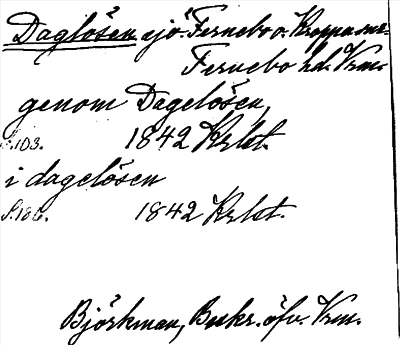 Daglösen sjö Fernebo o. Kroppa snr
Fernebo hd. Vrm.
genom Dagelösen,
S. 103. 1842 Krlst.
i dagelösen
S. 186. 1842 Krlst.
Björkman, Beskr. öfv. Vrm.